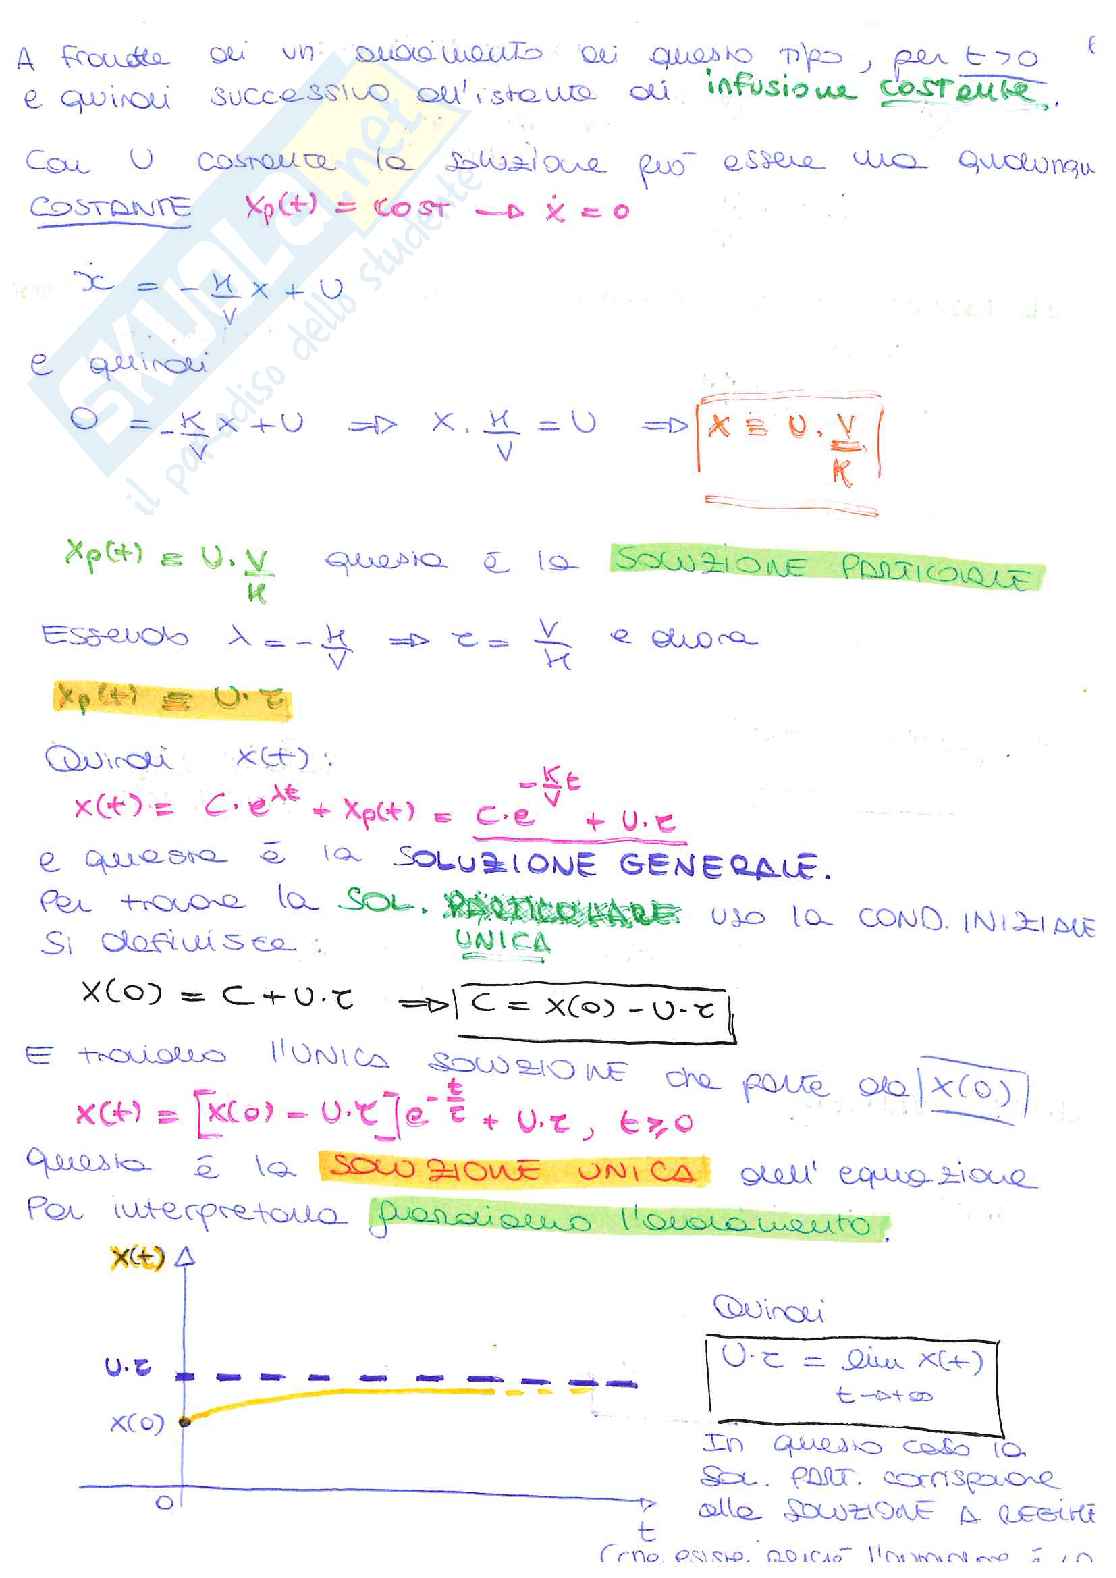 A fronte di un andamento di questo tipo, per t>0
e quindi successivo all'istante di infusione costante.
Con U costante la soluzione può essere una qualunqu
COSTANTE Xp(t) = COST → ẋ = 0
ẋ = -K/V x + U
e quindi
0 = -K/V x + U ⇒ x · K/V = U ⇒ x = U · V/K
Xp(t) = U · V/K questa è la SOLUZIONE PARTICOLARE
Essendo λ = -K/V ⇒ τ = V/K e allora
Xp(t) = U·τ
Quindi x(t):
x(t) = C·e^λt + Xp(t) = C·e^-K/V t + U·τ
e questa è la SOLUZIONE GENERALE.
Per trovare la SOL. PARTICOLARE uso la COND. INIZIALE
UNICA
Si definisce:
X(0) = C + U·τ ⇒ C = X(0) - U·τ
E troviamo l'UNICA SOLUZIONE che parte da X(0)
x(t) = [X(0) - U·τ] e^-t/τ + U·τ, t≥0
questa è la SOLUZIONE UNICA dell'equazione
Per interpretarla guardiamo l'andamento.
X(t)
U·τ
X(0)
0
t
Quindi
U·τ = lim X(t)
t→+∞
In questo caso la
SOL. PART. corrisponde
alla SOLUZIONE A REGIME
SKUOLA.net
il paradiso dello studente